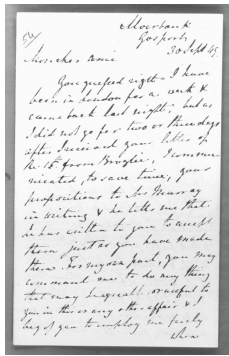 Alverbank
Gosport
30 Sept 45
54/
Mon cher ami
You guessed right - I have
been in London for a week &
came back last night; but as
I did not go for two or three days
after I received your letter of
the 15th from Broglie, I commu-
nicated, to save time, your
propositions to Mr Murray
in writing & he tells me that
he has written to you to accept
them just as you have made
them. For my own part, you may
command me to do any thing
that may be agreeable or useful to
you in this or any other affair & I
beg of you to employ me freely